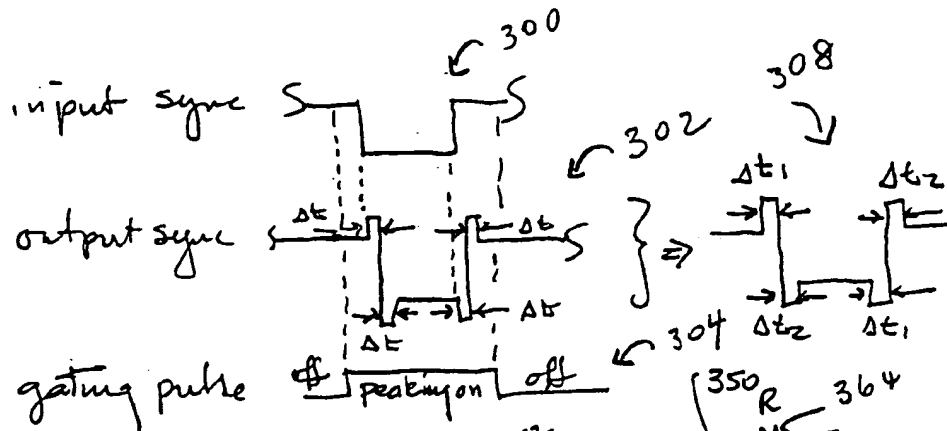 300
input sync
308
302
Δt₁ Δt₂
output sync Δt Δt
⇒
Δt Δt
Δt₂ Δt₁
304
gating pulse off peaking on off
350
R
364